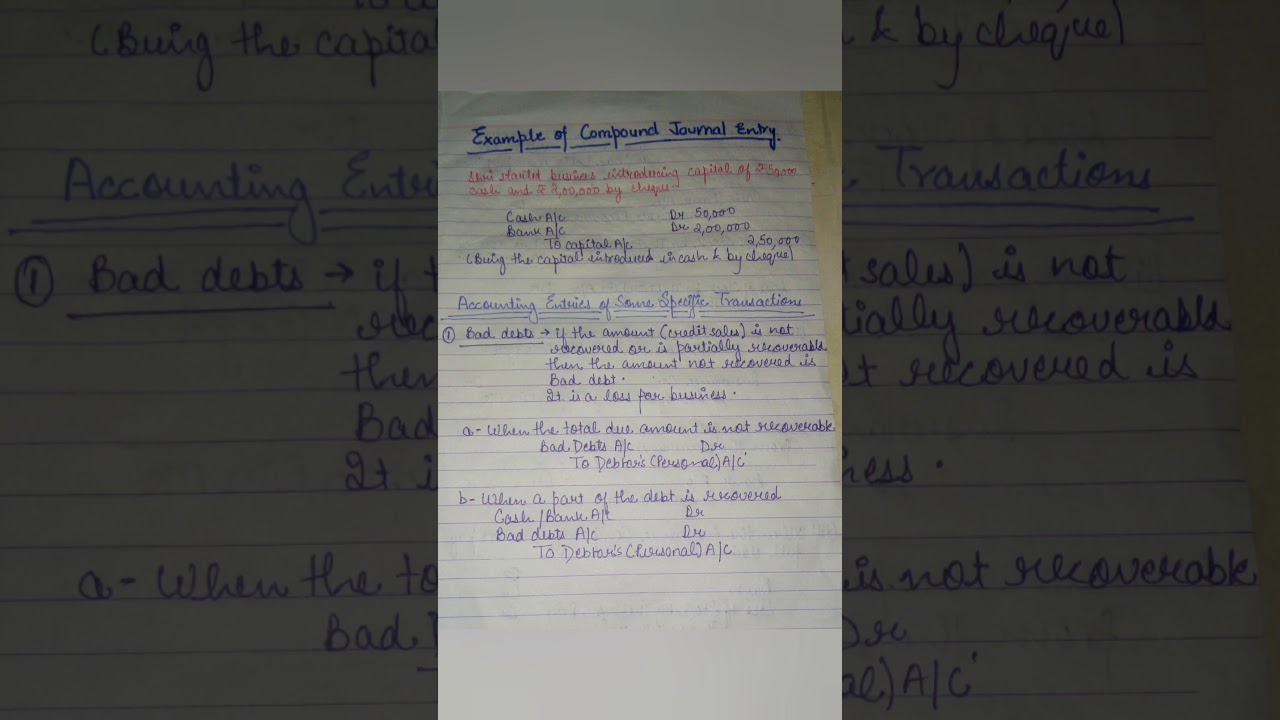 Example of Compound Journal Entry.
Shri started business introducing capital of ₹50,000
cash and ₹ 2,00,000 by cheque.
Cash A/c Dr 50,000
Bank A/c Dr 2,00,000
To capital A/c 2,50,000
(Being the capital introduced in cash & by cheque)
Accounting Entries of Some Specific Transactions
① Bad debts → if the amount (credit sales) is not
recovered or is partially recoverable
then the amount not recovered is
Bad debt.
It is a loss for business.
a- When the total due amount is not recoverable
Bad Debts A/c Dr
To Debtor's (Personal) A/C
b- When a part of the debt is recovered
Cash/Bank A/c Dr
Bad debts A/c Dr
To Debtor's (Personal) A/C